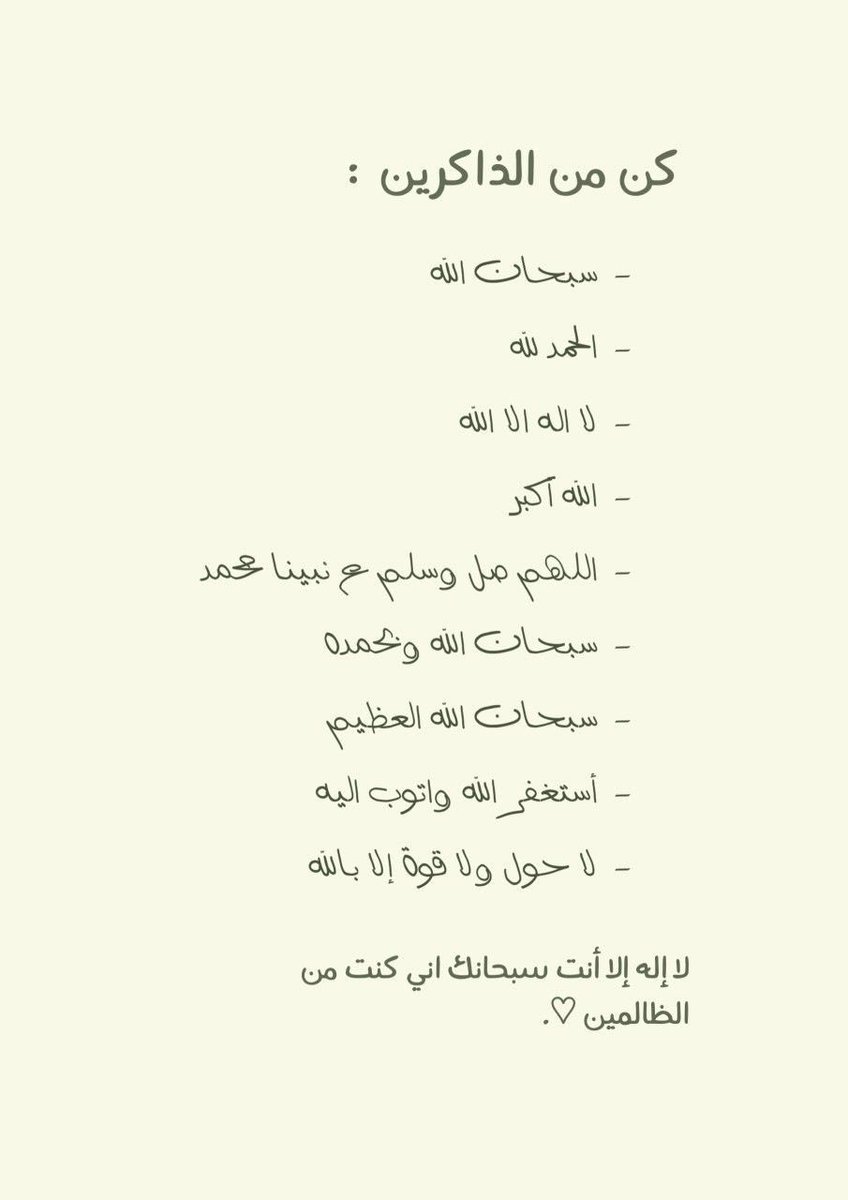 كن من الذاكرين :
- سبحان الله
- الحمد لله
- لا اله الا الله
- الله أكبر
- اللهم صل وسلم ع نبينا محمد
- سبحان الله وبحمده
- سبحان الله العظيم
- أستغفر الله واتوب اليه
- لا حول ولا قوة إلا بالله
لا إله إلا أنت سبحانك اني كنت من
الظالمين ♡.